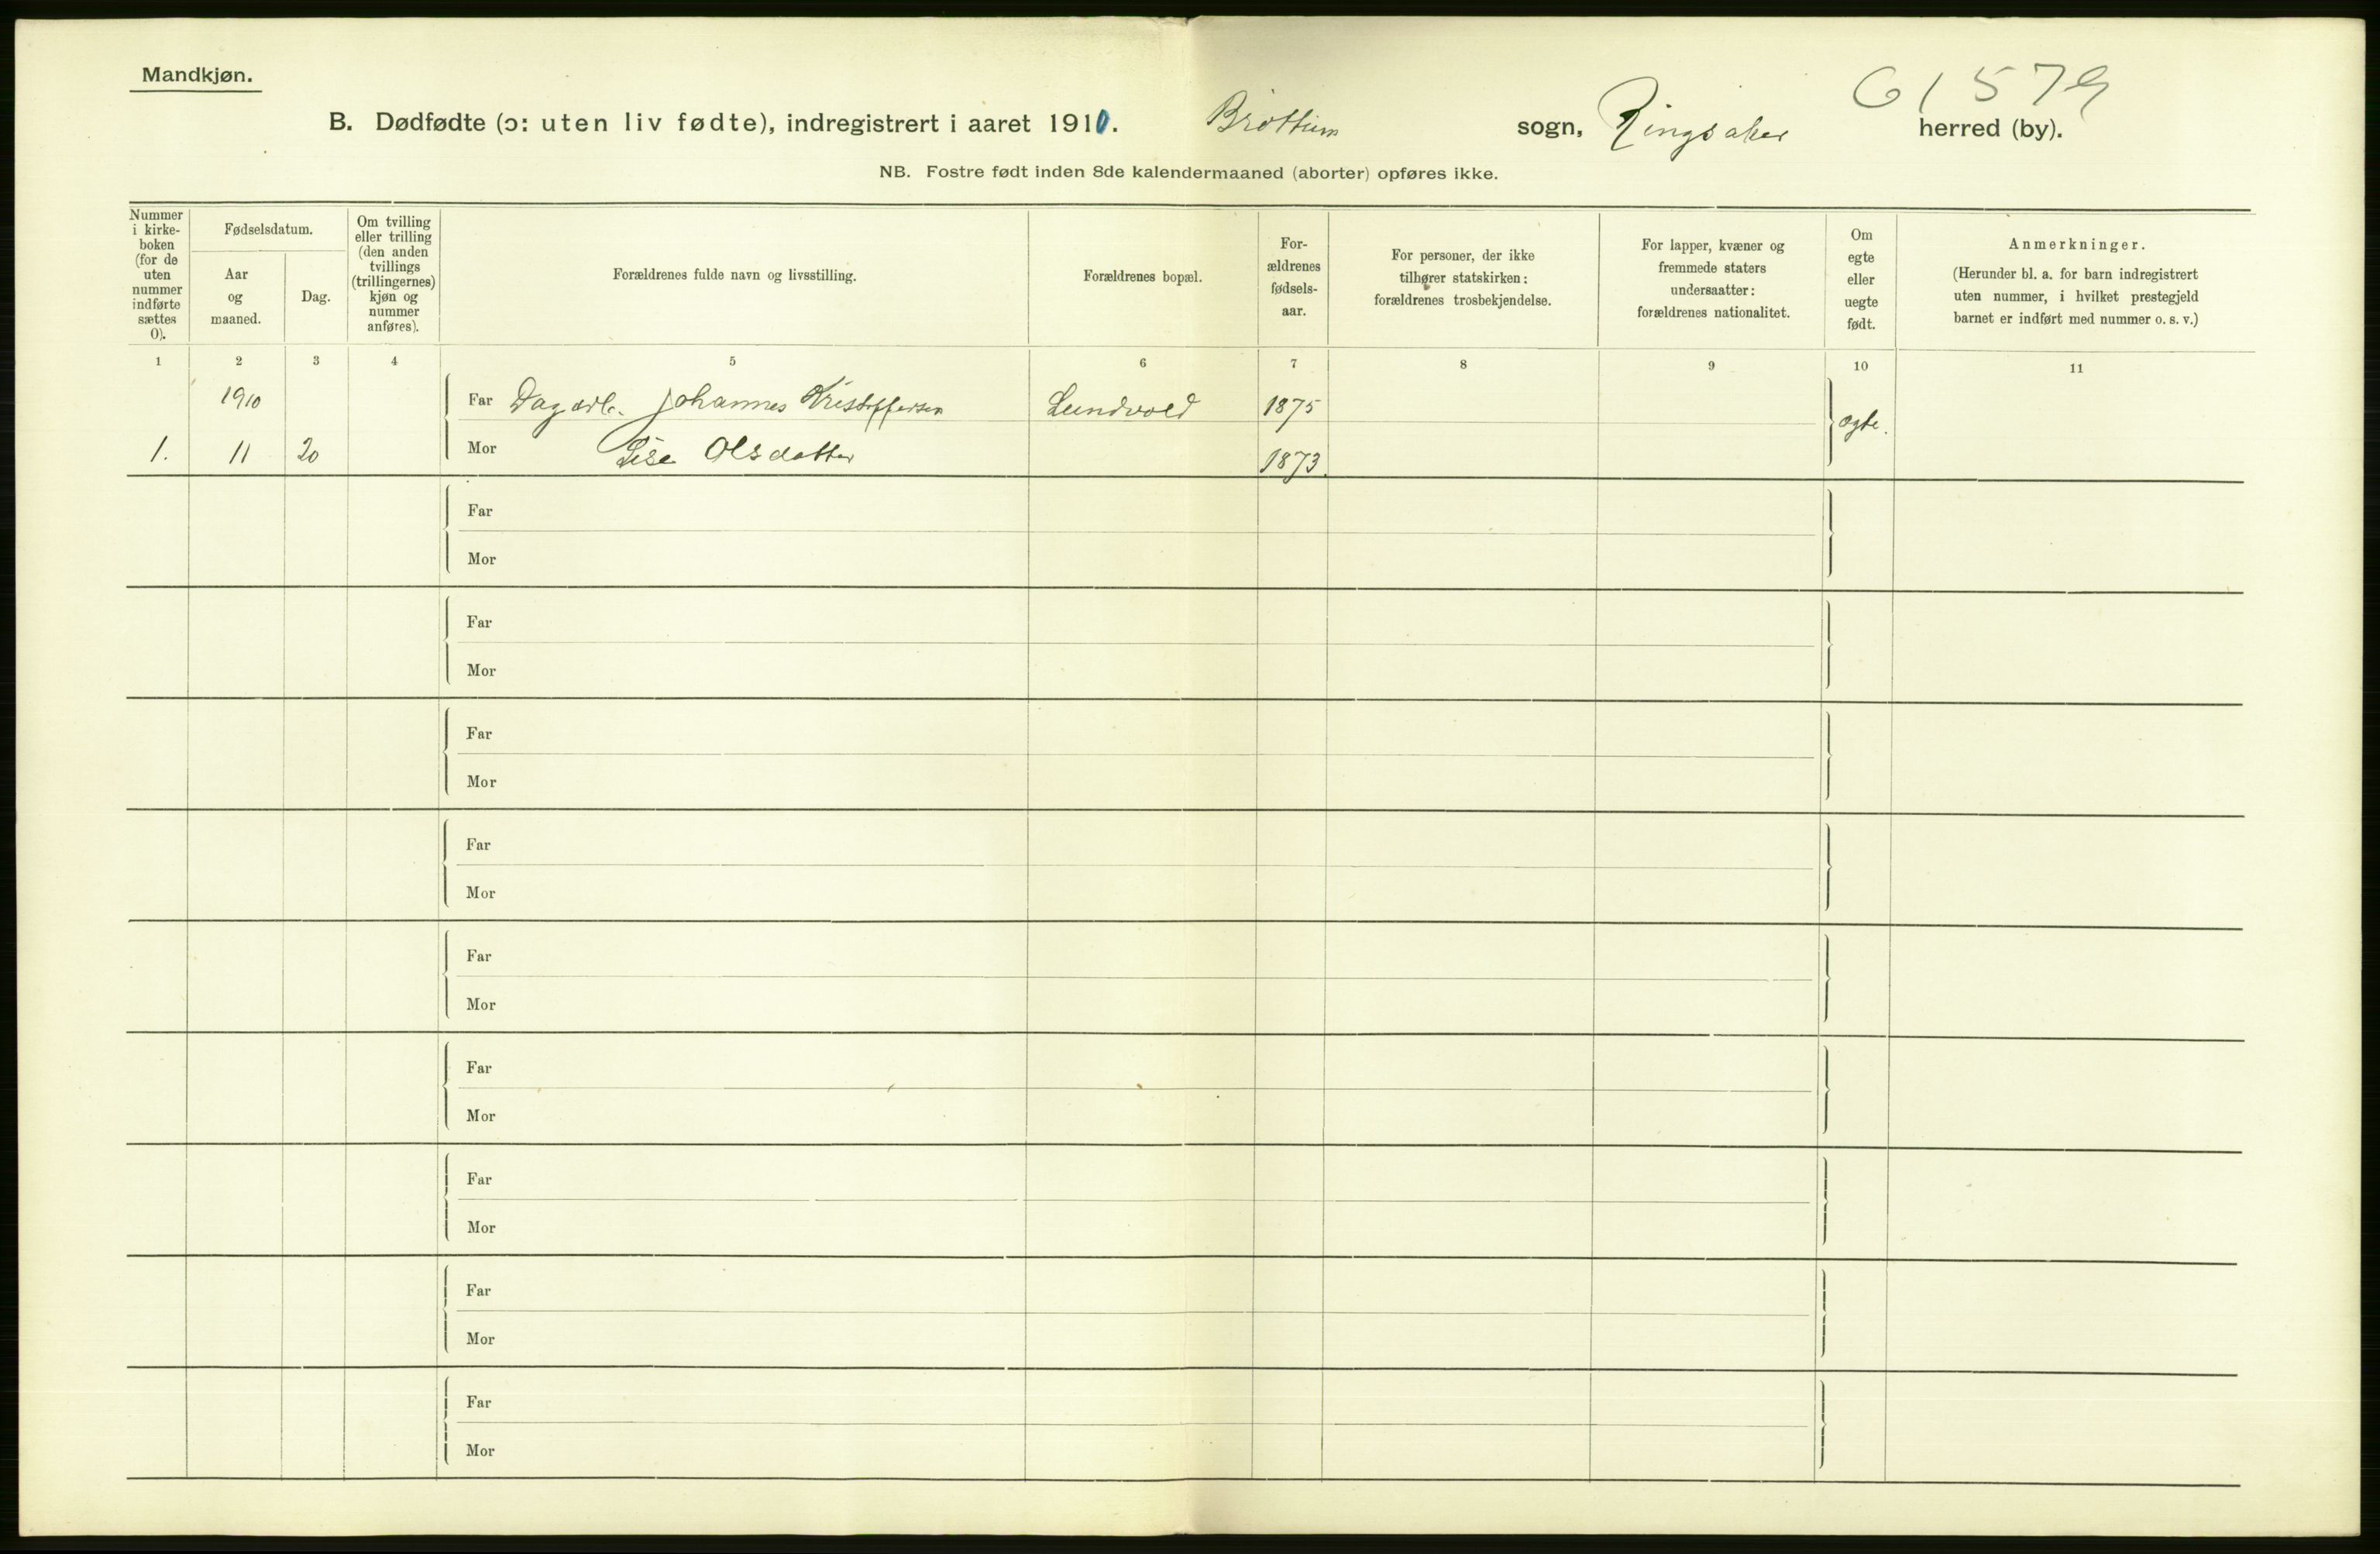 Mandkjøn.
61579
B. Dødfødte (ɔ: uten liv fødte), indregistrert i aaret 1910. Brøttum sogn, Ringsaker herred (by).
NB. Fostre født inden 8de kalendermaaned (aborter) opføres ikke.
Nummer i kirke-boken (for de uten nummer indførte sættes 0).
Fødselsdatum.
Aar og maaned.
Dag.
Om tvilling eller trilling (den anden tvillings (trillingernes) kjøn og nummer anføres).
Forældrenes fulde navn og livsstilling.
Forældrenes bopæl.
For-ældrenes fødsels-aar.
For personer, der ikke tilhører statskirken: forældrenes trosbekjendelse.
For lapper, kvæner og fremmede staters undersaatter: forældrenes nationalitet.
Om egte eller uegte født.
Anmerkninger.
(Herunder bl. a. for barn indregistrert uten nummer, i hvilket prestegjeld barnet er indført med nummer o. s. v.)
1 2 3 4 5 6 7 8 9 10 11
1910 Far Dagarb. Johannes Kristoffersen Lundvold 1875 ægte.
1. 11 20 Mor Lise Olsdatter 1873.
Far
Mor
Far
Mor
Far
Mor
Far
Mor
Far
Mor
Far
Mor
Far
Mor
Far
Mor
Far
Mor